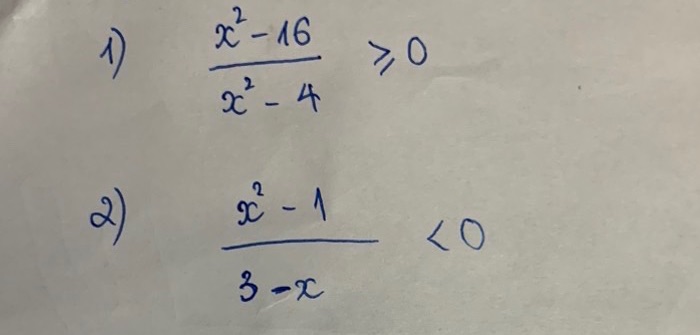 1) \frac{x^2 - 16}{x^2 - 4} ⩾ 0
2) \frac{x^2 - 1}{3 - x} < 0